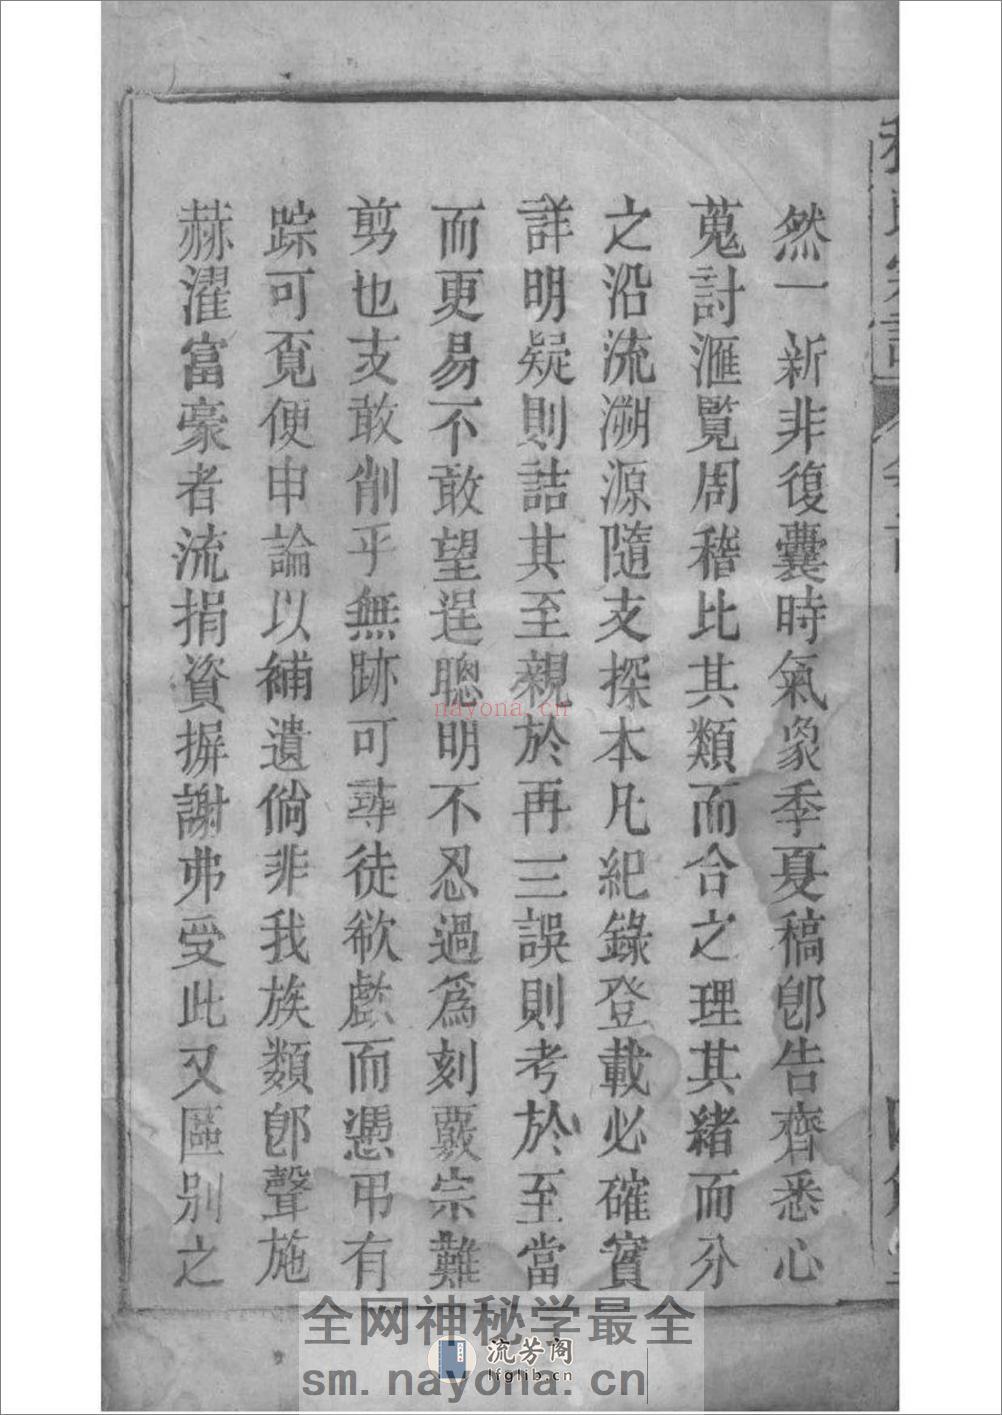 然一新非復曩時氣象季夏稿卽告齊悉心
蒐討滙覧周稽比其類而合之理其緒而分
之沿流溯源隨支探本凡紀錄登載必確實
詳明疑則詰其至親於再三誤則考於至當
而更易不敢望逞聰明不忍過爲刻覈宗難
剪也支敢削乎無跡可尋徒欷歔而憑弔有
踪可覓便申論以補遺倘非我族類卽聲施
赫濯富豪者流捐資摒謝弗受此又區別之
nayona.cn
全网神秘学最全
流芳阁
lfglib.cn
sm.nayona.cn